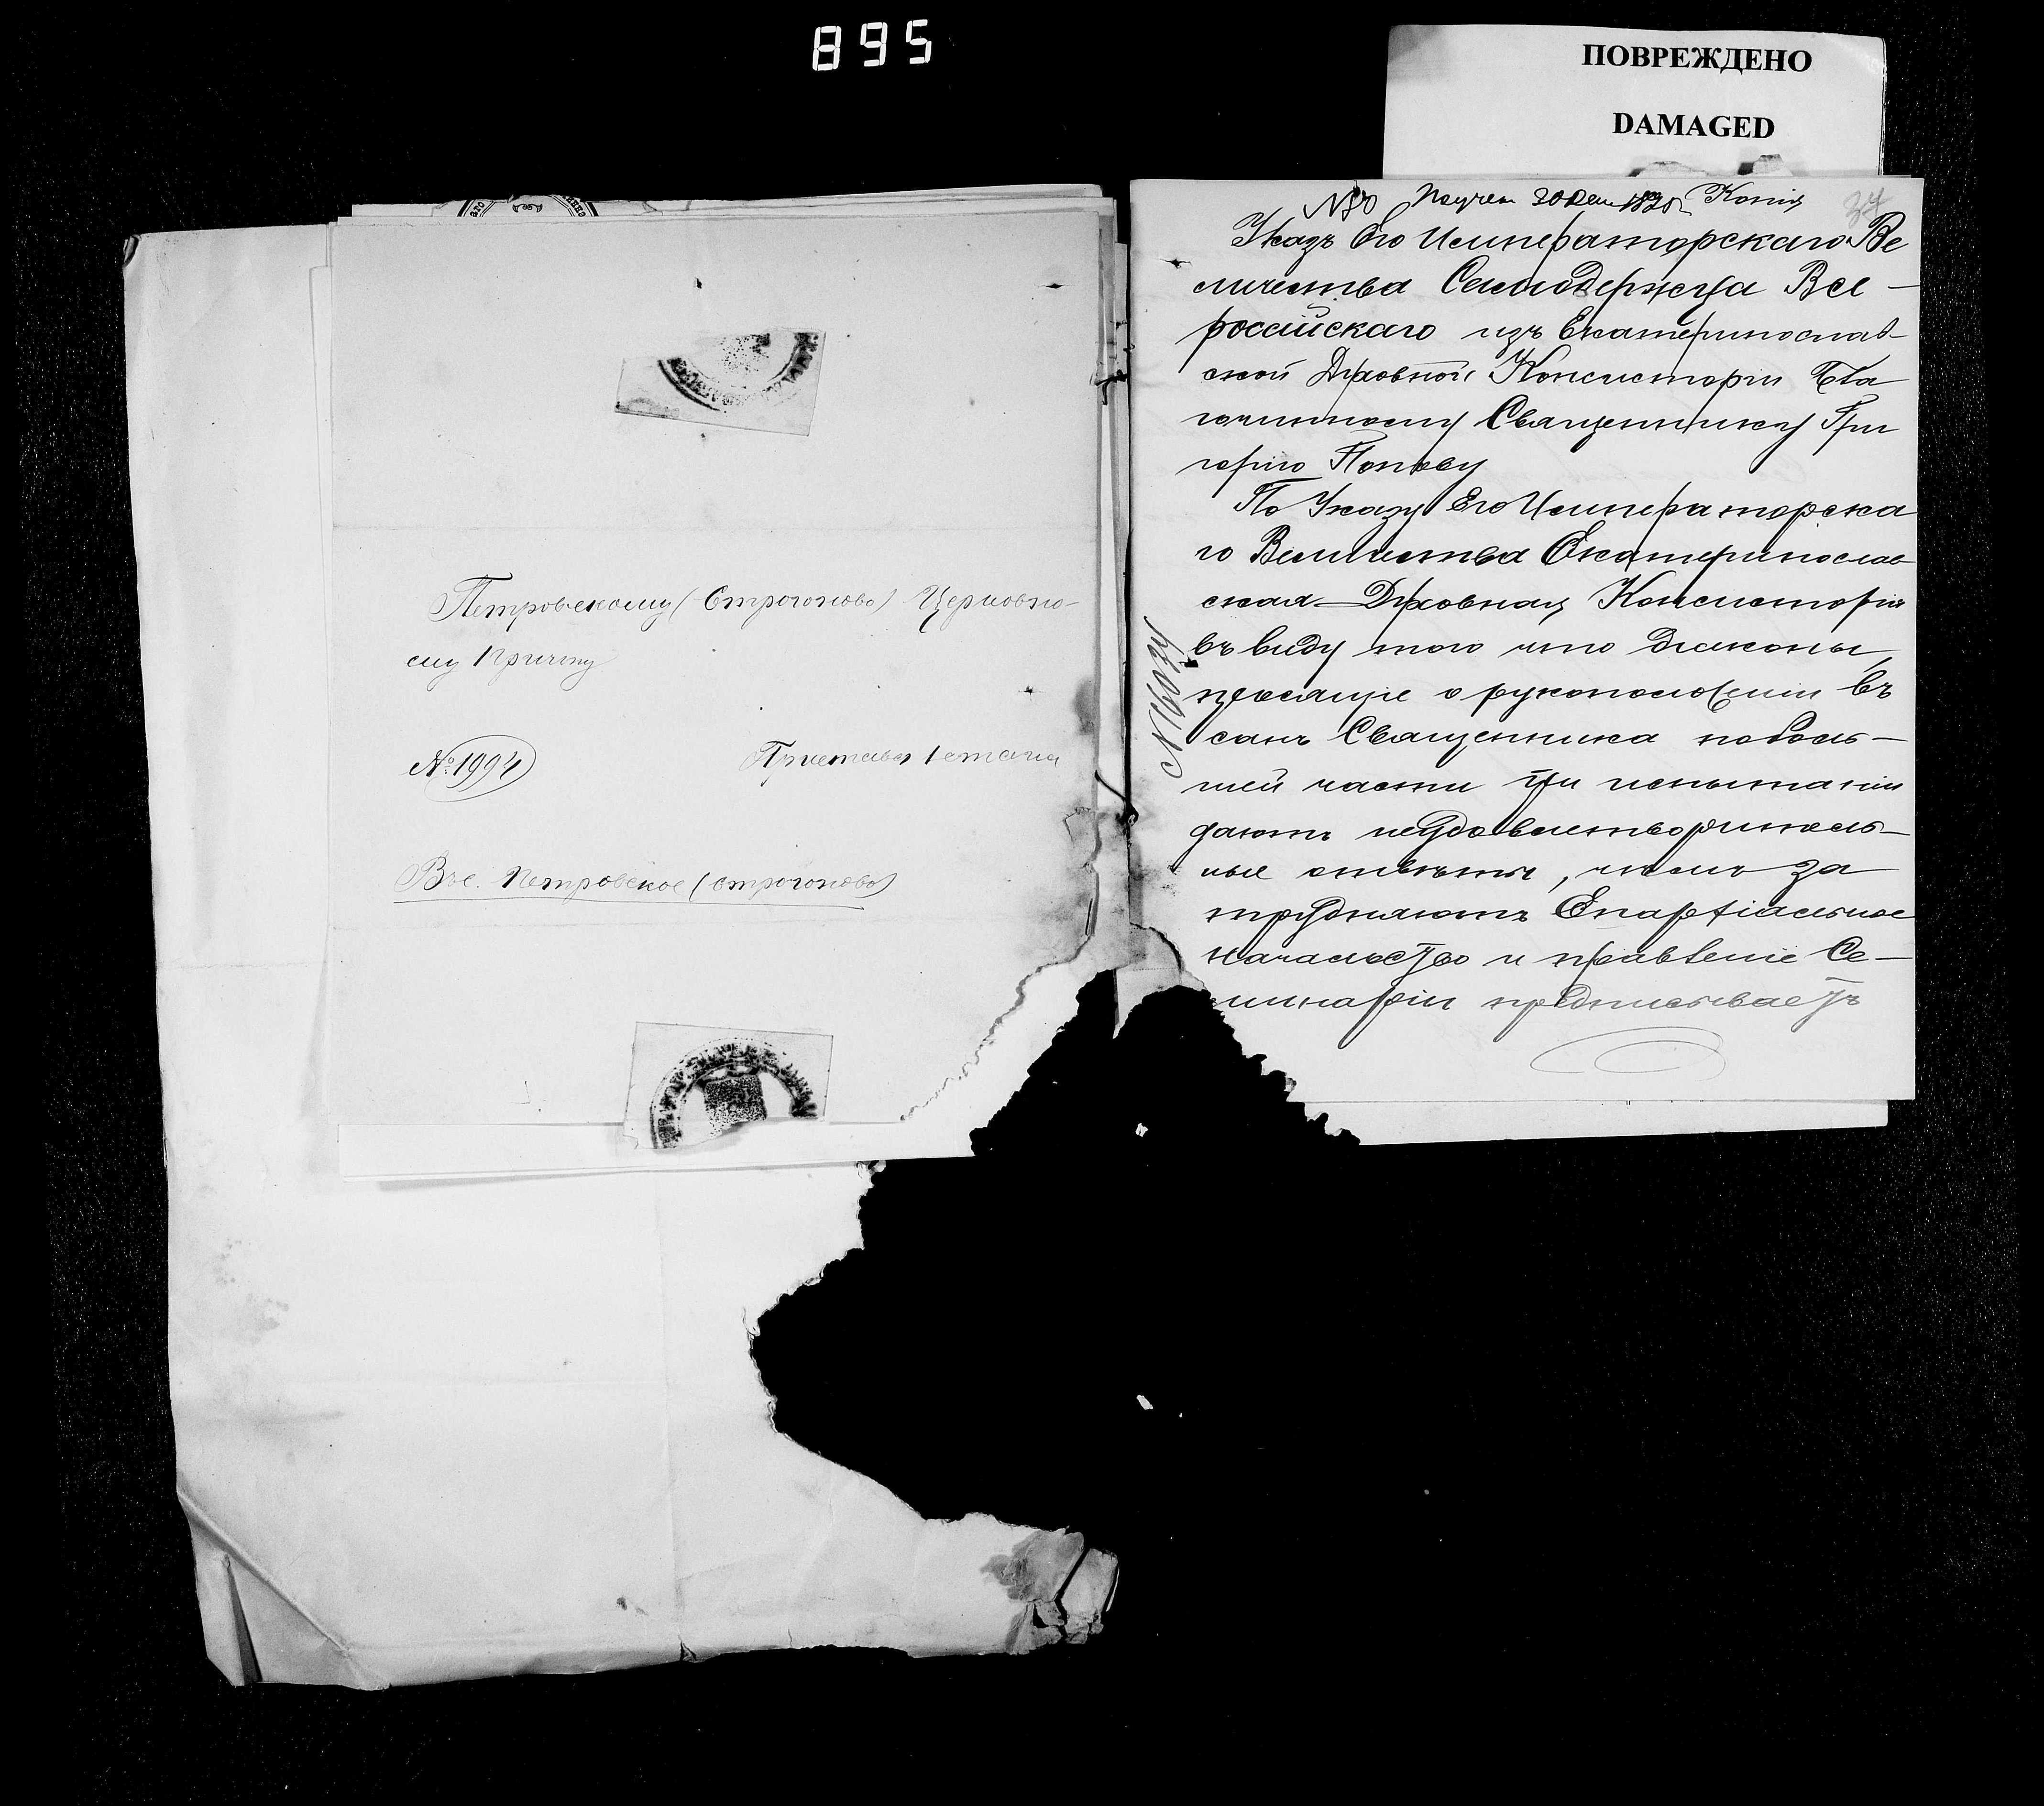 895
ПОВРЕЖДЕНО
DAMAGED
Петровскому (Строгоново) Церковно-
му Причту
№ 1994
Пристава 1 стана
Въ с. Петровское (Строгоново)
Копія
37
Указъ Его Императорскаго Ве
личества Самодержца Все-
россійскаго изъ Екатеринослав-
ской Духовной Консисторіи Бла
гочинному Священнику Гри
горію Попову
По Указу Его Императорска
го Величества Екатеринослав
ская Духовная Консисторія
въ виду того что Діаконы,
просящіе о рукоположеніи въ
санъ Священника по боль-
шей части при испытаніи
даютъ неудовлетворитель-
ные отвѣты, чѣмъ за
трудняютъ Епархіальное
Начальство и правленіе Се-
минаріи предписываетъ